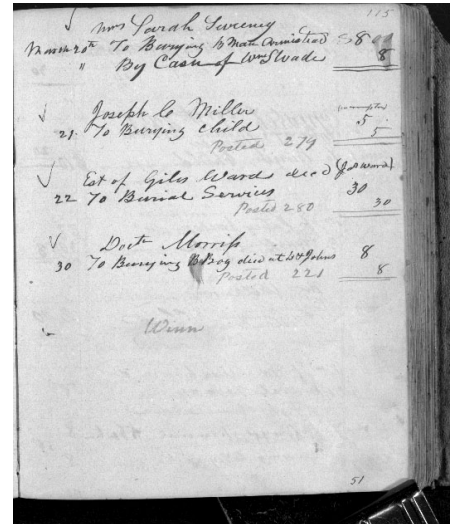 115
Mrs Sarah Sweeney
March 20th To Burying B Man Armistead $8 00
" By Cash of Wm Slade 8
Joseph C Miller
21. To Burying Child 5
5
Posted 279
Est of Giles Ward decd (Jas Ward)
22 To Burial Services 30
30
Posted 280
Doctr Morriss
30 To Burying B Boy died at St Johns 8
8
Posted 221
Winn
51